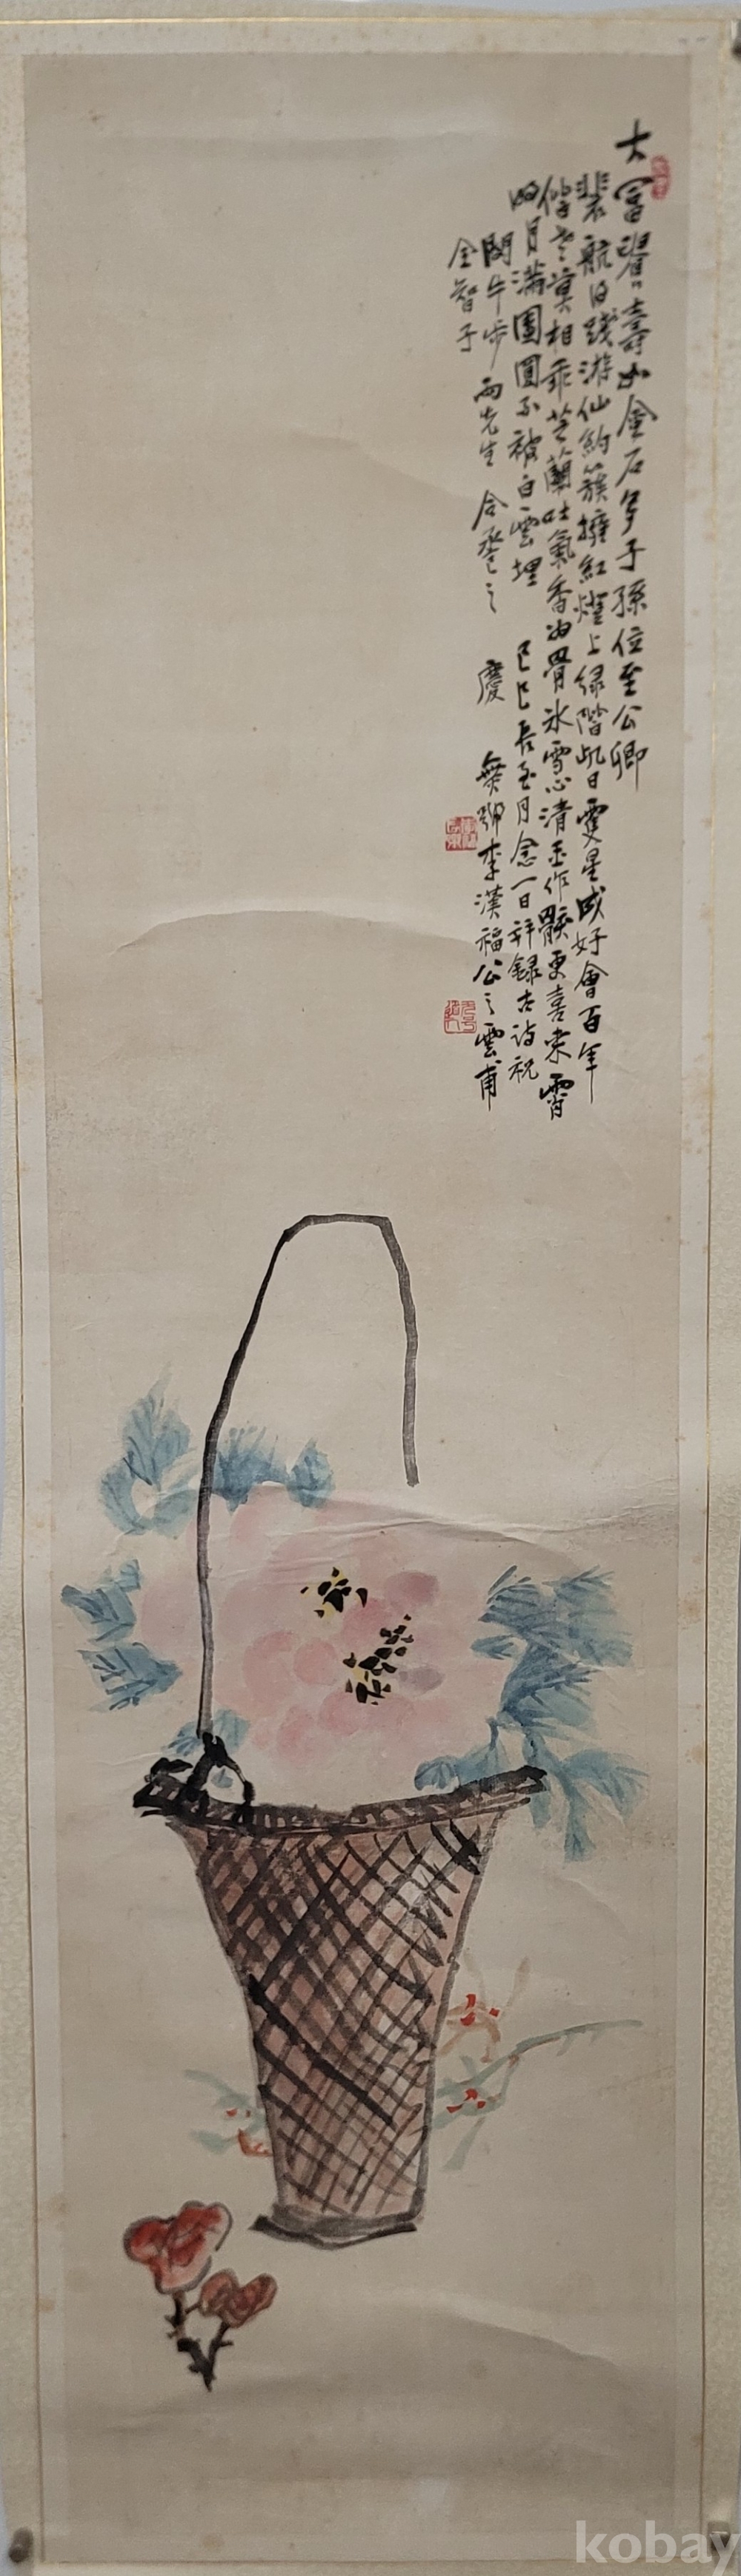 大富貴壽如金石多子孫位至公卿
裴航自踐游仙約簇擁紅燈上綠階此日雙星成好會百年
偕老莫相乖芝蘭吐氣香為骨冰雪心清玉作骸更喜來霄
明月滿團圓不被白雲埋 己巳長至月念一日 錄古詩祝
閔牛步 兩先生 合巹之 慶 無號李漢福公之雲甫
金智子
kobay